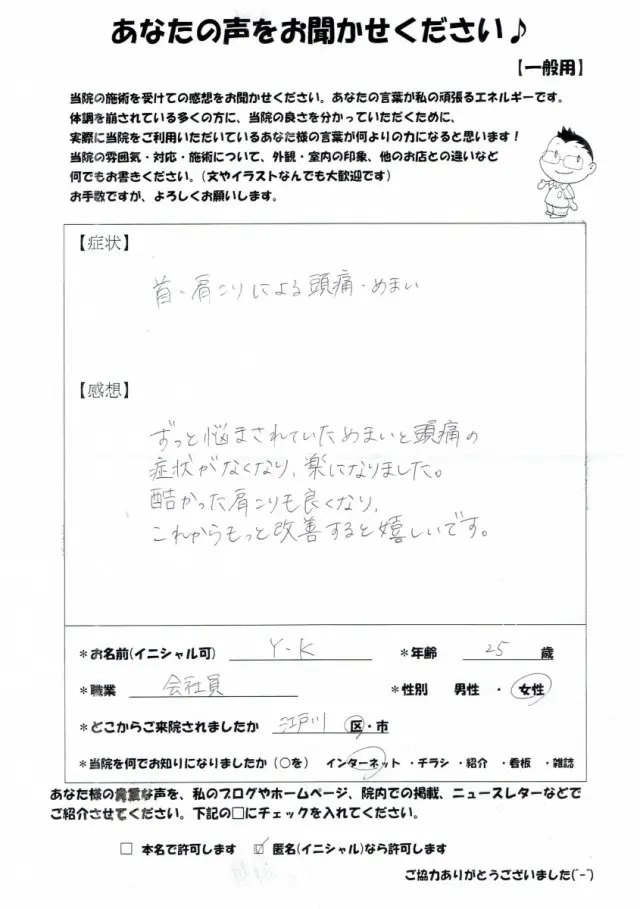 あなたの声をお聞かせください♪
【一般用】
当院の施術を受けての感想をお聞かせください。あなたの言葉が私の頑張るエネルギーです。
体調を崩されている多くの方に、当院の良さを分かっていただくために、
実際に当院をご利用いただいているあなた様の言葉が何よりの力になると思います！
当院の雰囲気・対応・施術について、外観・室内の印象、他のお店との違いなど
何でもお書きください。(文やイラストなんでも大歓迎です)
お手数ですが、よろしくお願いします。
【症状】
首・肩こりによる頭痛・めまい
【感想】
ずっと悩まされていためまいと頭痛の
症状がなくなり、楽になりました。
酷かった肩こりも良くなり、
これからもっと改善すると嬉しいです。
*お名前(イニシャル可) Y-K *年齢 25 歳
*職業 会社員 *性別 男性 ・ 女性
*どこからご来院されましたか 江戸川 区・市
*当院を何でお知りになりましたか (〇を) インターネット ・チラシ ・紹介 ・看板 ・雑誌
あなた様の貴重な声を、私のブログやホームページ、院内での掲載、ニュースレターなどで
ご紹介させてください。下記の□にチェックを入れてください。
□ 本名で許可します ☑ 匿名(イニシャル)なら許可します
ご協力ありがとうございました(^-^)